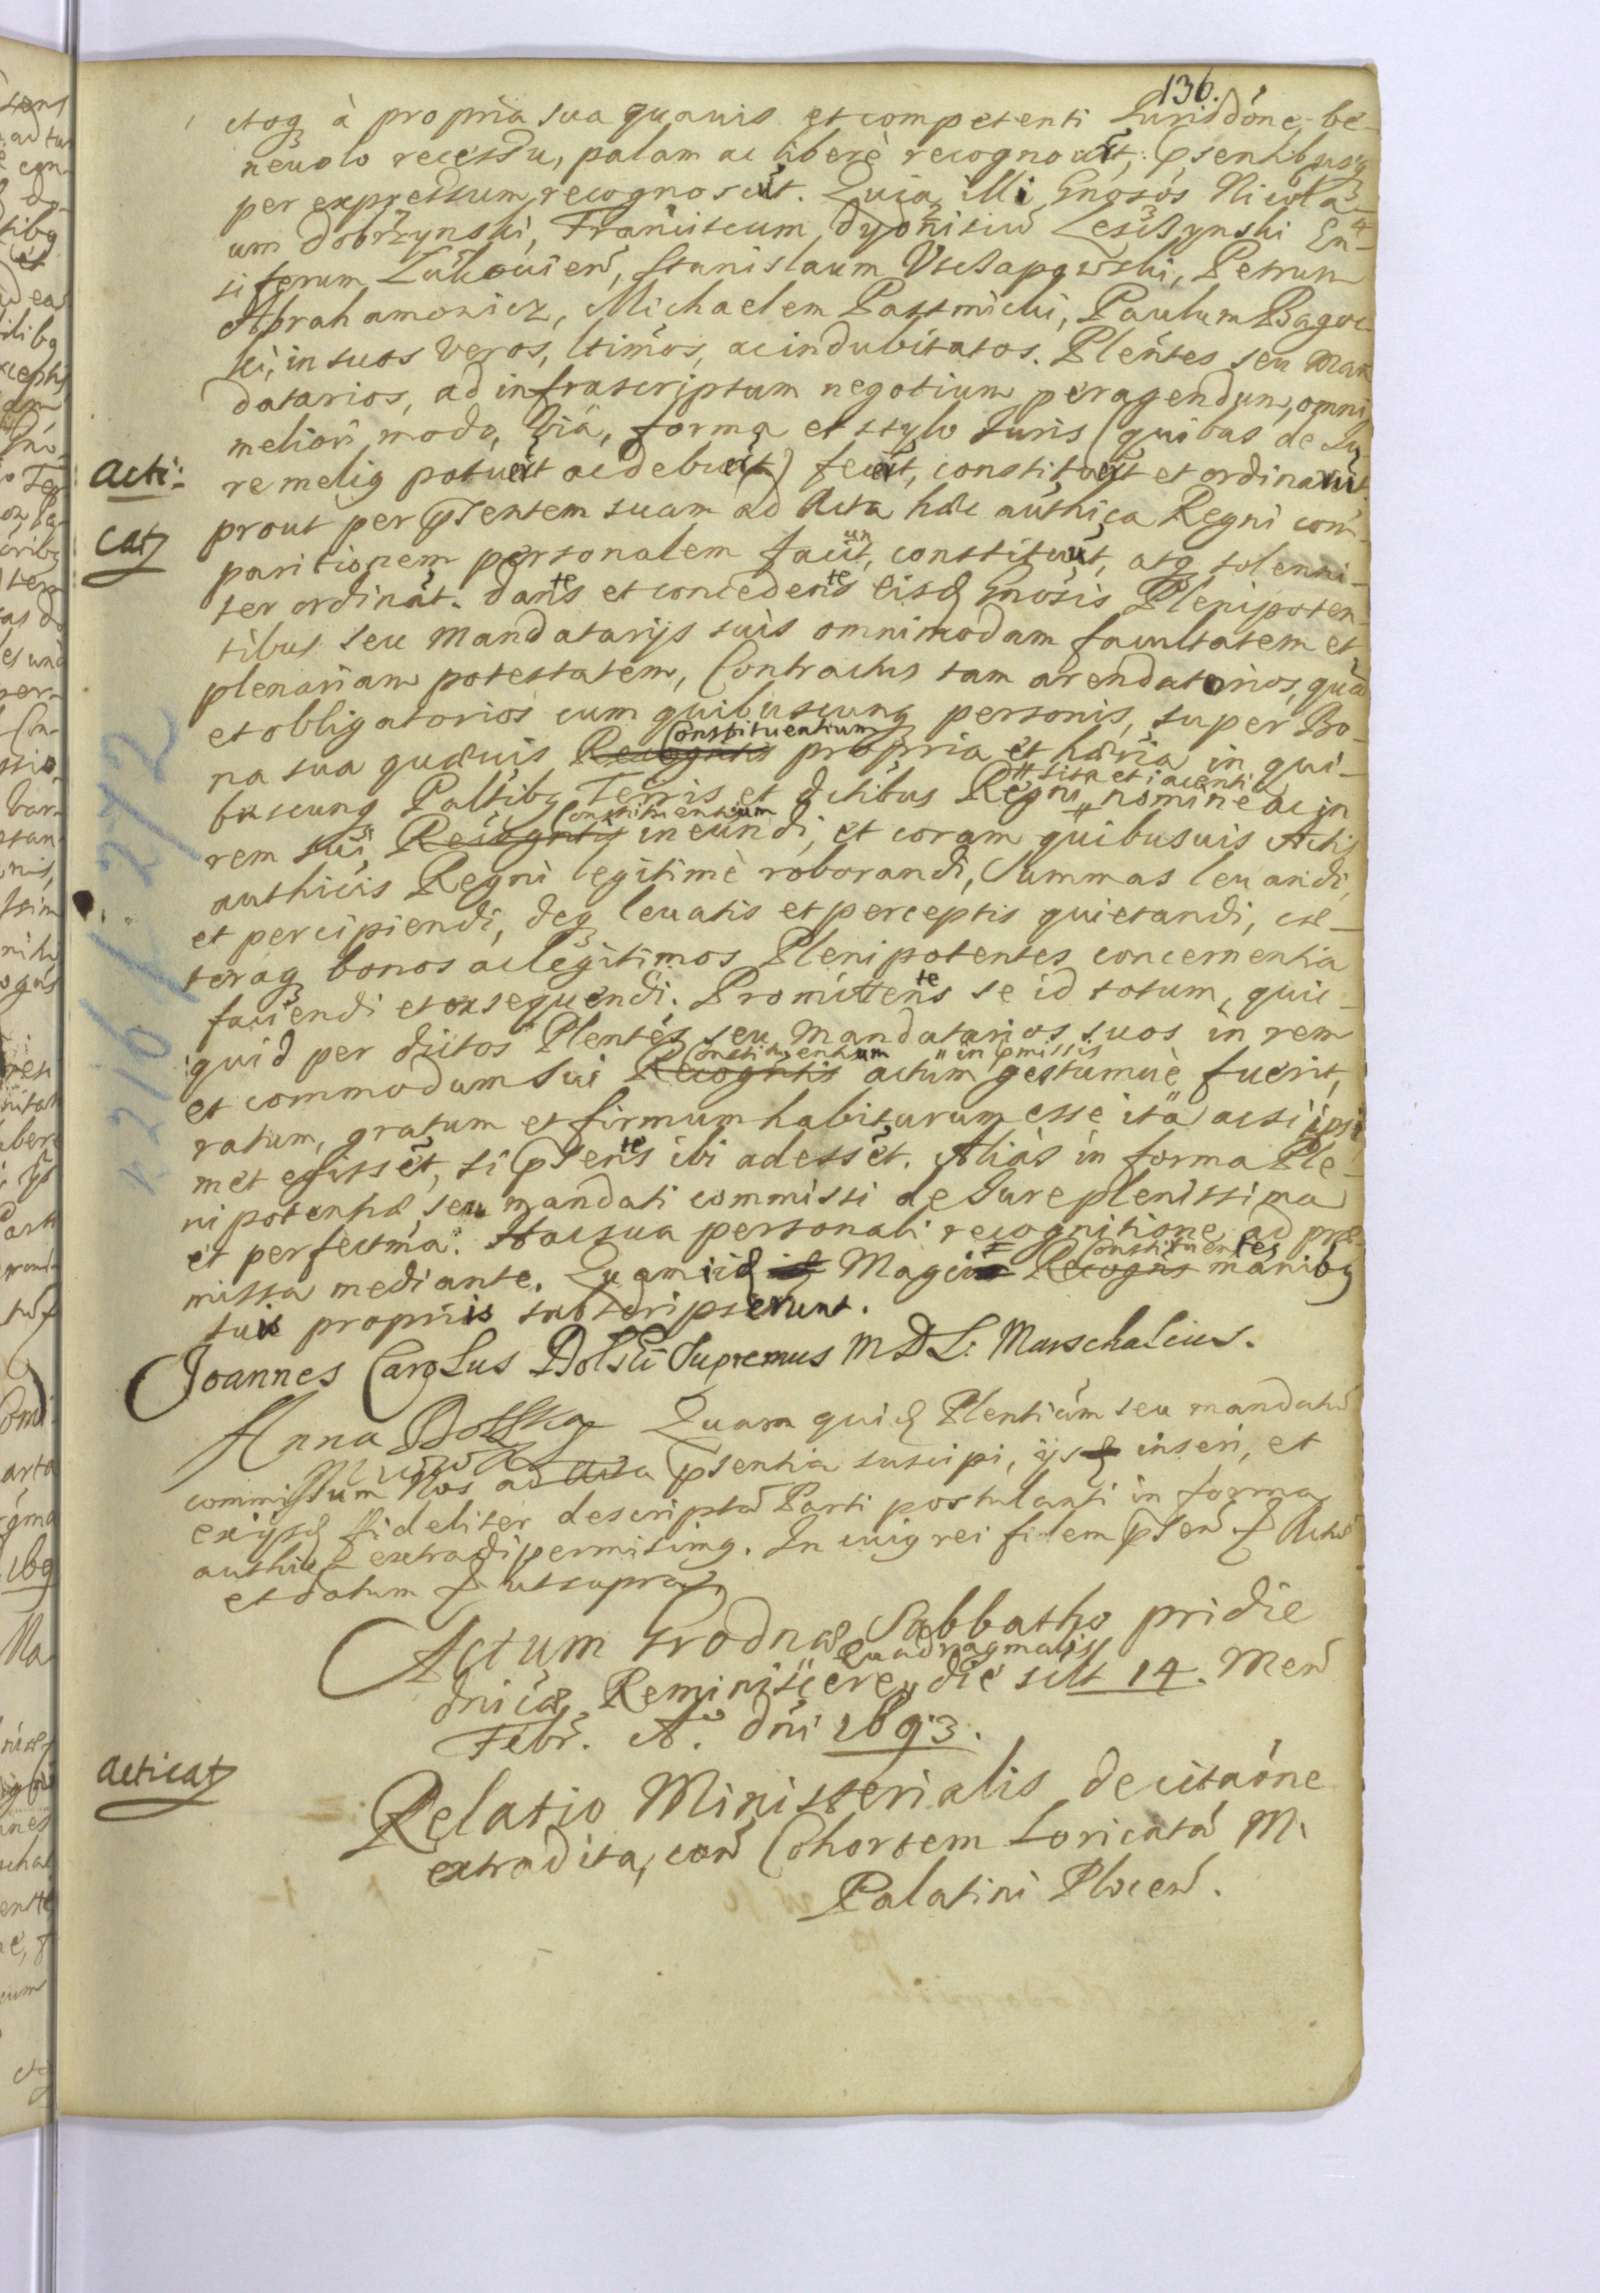 136.
etoq̃ à propria sua quavis et competenti Jurisdóne be-
nevolo recessu, palam ac liberè recognovit, p̃sentibusq̃
per expressum recognoscũt. Quia illi Gnosós Nicola-
um Dobrzynski, Franciscum Dyonisiũ Leszczynski En-
siferum Lukouien̄, Stanislaum Vschapowski, Petrum
Abrahamowicz, Michaelem Passmicki, Paulum Bągoc-
ki, in suos veros, ltimós, ac indubitatos. Pleńtes seu Man
datarios, ad infrascriptum negotium peragendum, omni
meliori modo, viâ, forma et stylo Juris (quibus de Ju-
acti:
re melig potuerũt ac debuerũt) fecerũt, constituerũt et ordinarũt.
prout per p̃sentem suam ad Acta hæc authica Regni com-
cat
paritionem personalem faciũt, constituũt, atq̃ solenni-
ter ordinãt. dantes et concedentes eisd̃ Gnosis Plenipoten-
tibus seu Mandatarijs suis omnimodam facultatem et
plenariam potestatem, Contractus tam arendatorios, quã
et obligatorios cum quibuscunq̃ personis, super Bo-
Constituentium
na sua quævis Recogntis propria et hæria in qui-
sita et iacentia
buscunq̃ Paltibq Terris et dctibus Regni nomine ac in
Constituentium
rem sui Recogntis ineundi, et coram quibusuis Actis
authicis Regni legitimè roborandi, Summas levandi,
et percipiendi, deq̃ levatis et perceptis quietandi, cæ-
teraq̃ bonos ac legitimos Plenipotentes concernentia
faciendi et exsequendi. Promittentes se id totum, quic-
quid per dictos Plentes seu Mandatarios suos in rem
Constituentium in p̃missis
et commodum sui Recogntis actum gestumuè fuerit,
ratum, gratum et firmum habiturum esse ità ac si ipsi
met egissẽt, si p̃sentes ibi adessẽt. Aliàs in forma Ple-
nipotentiæ, seu mandati commissi de Jure plenissima
et perfectma. Hac sua personali recognitione ad præ-
Constituentes
missa mediante. Quam iid̃ Magci Recogns manibq
suis proprijs subscripserunt.
Joannes Carolus Dolski Supremus MDL: Marschalcius.
Anna Dolska Quam quid̃ Plentiam seu mandatũ
commissum Nos ad Acta p̃sentia suscipi, ijsd̃ inseri, et
exijsd̃ fideliter descriptũ Parti postulanti in forma
authica extradi permisimq. In cuiq rei fidem p̃sen̄ Actũ
et datum ut supra.
Actum Grodnæ Sabbatho pridie
Quadragmalis
dnicæ Reminiscere, die scilt 14. Men̄
Febr̄. Aº. dni 1693.
acticat
Relatio Ministerialis de citaóne
extradita, con̄ Cohortem Loricatã M.
Palatini Plocen̄.